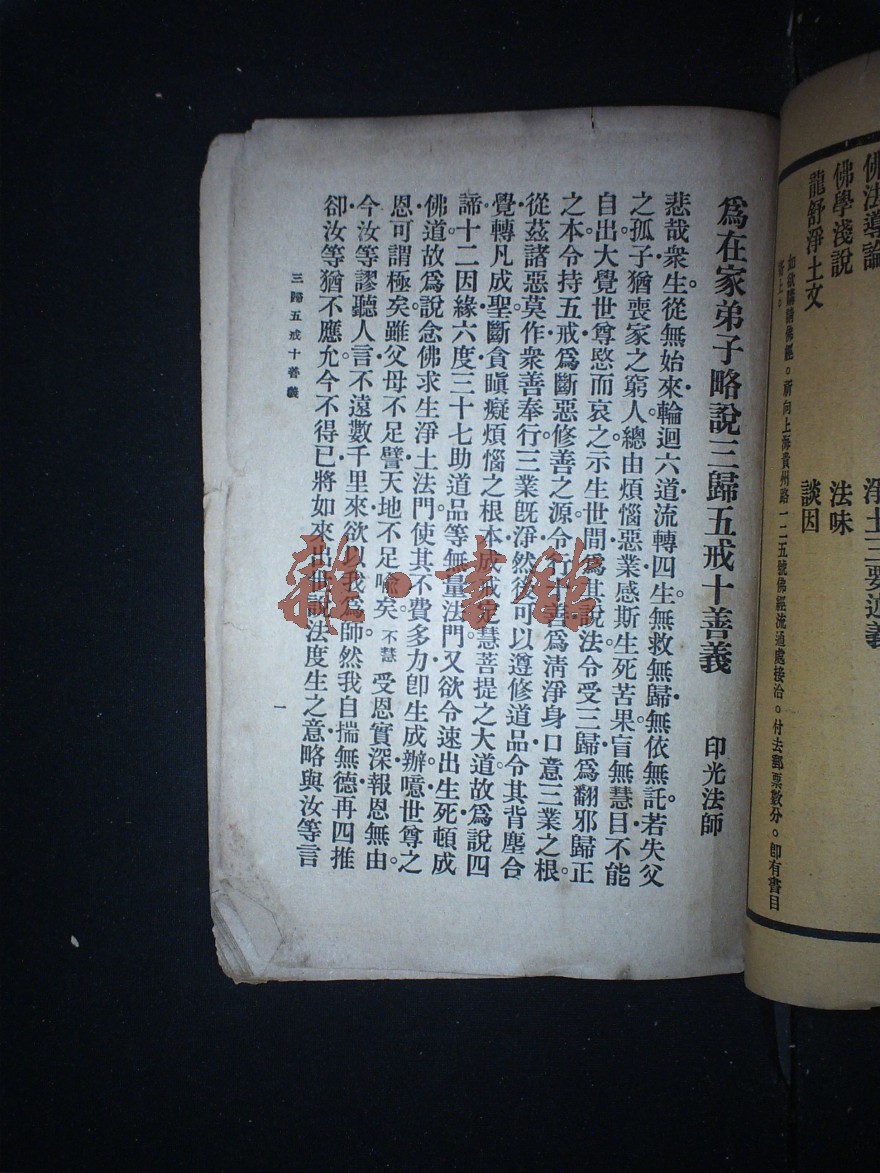 佛法導論
淨土三要述義
佛學淺說
法味
龍舒淨土文
談因
如欲購請佛經。祈向上海貴州路一二五號佛經流通處接洽。付去郵票數分。卽有書目
爲在家弟子略說三歸五戒十善義 印光法師
悲哉衆生。從無始來。輪迴六道。流轉四生。無救無歸。無依無託。若失父
之孤子。猶喪家之窮人。總由煩惱惡業。感斯生死苦果。盲無慧目。不能
自出。大覺世尊。愍而哀之。示生世間。爲其說法。令受三歸。爲翻邪歸正
之本。令持五戒。爲斷惡修善之源。令行十善。爲清淨身口意三業之根。
從茲諸惡莫作。衆善奉行。三業旣淨。然後可以遵修道品。令其背塵合
覺。轉凡成聖。斷貪瞋癡煩惱之根本。成戒定慧菩提之大道。故爲說四
諦十二因緣六度三十七助道品等無量法門。又欲令速出生死。頓成
佛道。故爲說念佛求生淨土法門。使其不費多力。卽生成辦。噫。世尊之
恩。可謂極矣。雖父母不足譬。天地不足喩矣。不慧受恩實深。報恩無由。
今汝等謬聽人言。不遠數千里來。欲以我爲師。然我自揣無德。再四推
卻。汝等猶不應允。今不得已。將如來出世說法度生之意。略與汝等言
三歸五戒十善義
一
雜·書館